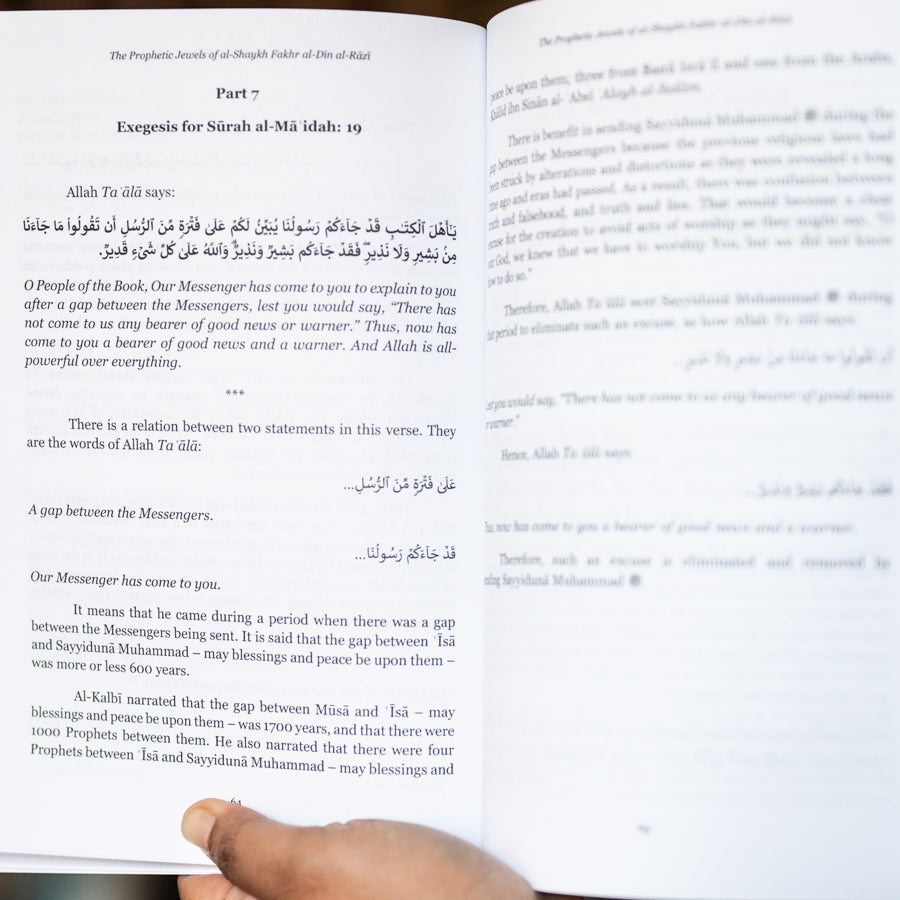 The Prophetic Jewels of al-Shaykh Fakhr al-Dīn al-Rāzī
Part 7
Exegesis for Sūrah al-Māʾidah: 19
Allah Taʿālā says:
يَـٰٓأَهْلَ ٱلْكِتَـٰبِ قَدْ جَآءَكُمْ رَسُولُنَا يُبَيِّنُ لَكُمْ عَلَىٰ فَتْرَةٍ مِّنَ ٱلرُّسُلِ أَن تَقُولُوا۟ مَا جَآءَنَا
مِنۢ بَشِيرٍ وَلَا نَذِيرٍ ۖ فَقَدْ جَآءَكُم بَشِيرٌ وَنَذِيرٌ ۗ وَٱللَّهُ عَلَىٰ كُلِّ شَىْءٍ قَدِيرٌ.
O People of the Book, Our Messenger has come to you to explain to you
after a gap between the Messengers, lest you would say, “There has
not come to us any bearer of good news or warner.” Thus, now has
come to you a bearer of good news and a warner. And Allah is all-
powerful over everything.
***
There is a relation between two statements in this verse. They
are the words of Allah Taʿālā:
عَلَىٰ فَتْرَةٍ مِّنَ ٱلرُّسُلِ...
A gap between the Messengers.
قَدْ جَآءَكُمْ رَسُولُنَا...
Our Messenger has come to you.
It means that he came during a period when there was a gap
between the Messengers being sent. It is said that the gap between ʿĪsā
and Sayyidunā Muhammad – may blessings and peace be upon them –
was more or less 600 years.
Al-Kalbī narrated that the gap between Mūsā and ʿĪsā – may
blessings and peace be upon them – was 1700 years, and that there were
1000 Prophets between them. He also narrated that there were four
Prophets between ʿĪsā and Sayyidunā Muhammad – may blessings and
64
The Prophetic Jewels of al-Shaykh Fakhr al-Dīn al-Rāzī
peace be upon them; three from Banī Isrāʾīl and one from the Arabs,
Khālid ibn Sinān al-ʿAbsī ʿAlayh al-Salām.
There is benefit in sending Sayyidunā Muhammad ﷺ during the
gap between the Messengers because the previous religions have had
been struck by alterations and distortions as they were revealed a long
time ago and eras had passed. As a result, there was confusion between
truth and falsehood, and truth and lies. That would become a clear
excuse for the creation to avoid acts of worship as they might say, “O
our God, we knew that we have to worship You, but we did not know
how to do so.”
Therefore, Allah Taʿālā sent Sayyidunā Muhammad ﷺ during
that period to eliminate such an excuse, as how Allah Taʿālā says:
أَن تَقُولُوا۟ مَا جَآءَنَا مِنۢ بَشِيرٍ وَلَا نَذِيرٍ...
Lest you would say, “There has not come to us any bearer of good news
or warner.”
Hence, Allah Taʿālā says:
فَقَدْ جَآءَكُم بَشِيرٌ وَنَذِيرٌ...
Thus, now has come to you a bearer of good news and a warner.
Therefore, such an excuse is eliminated and removed by
sending Sayyidunā Muhammad ﷺ.